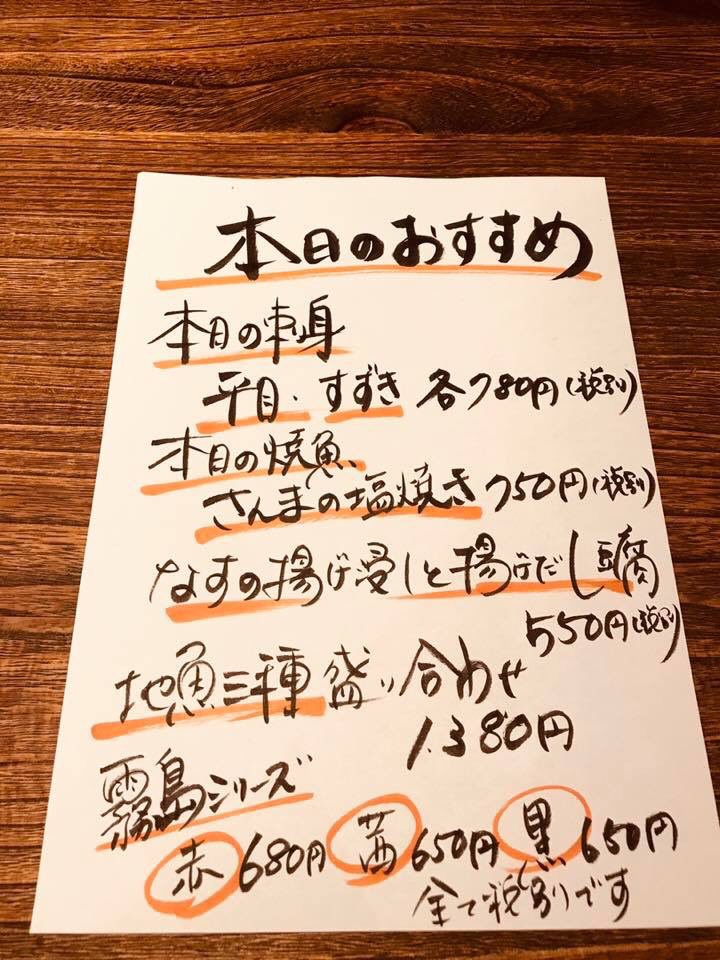 本日のおすすめ
本日の刺身
平目・すずき 各780円(税別)
本日の焼魚
さんまの塩焼き 750円(税別)
なすの揚げ浸しと揚げだし豆腐
550円(税別)
地魚三種盛り合わせ
1.380円
霧島シリーズ
赤 680円 茜 650円 黒 650円
全て税別です